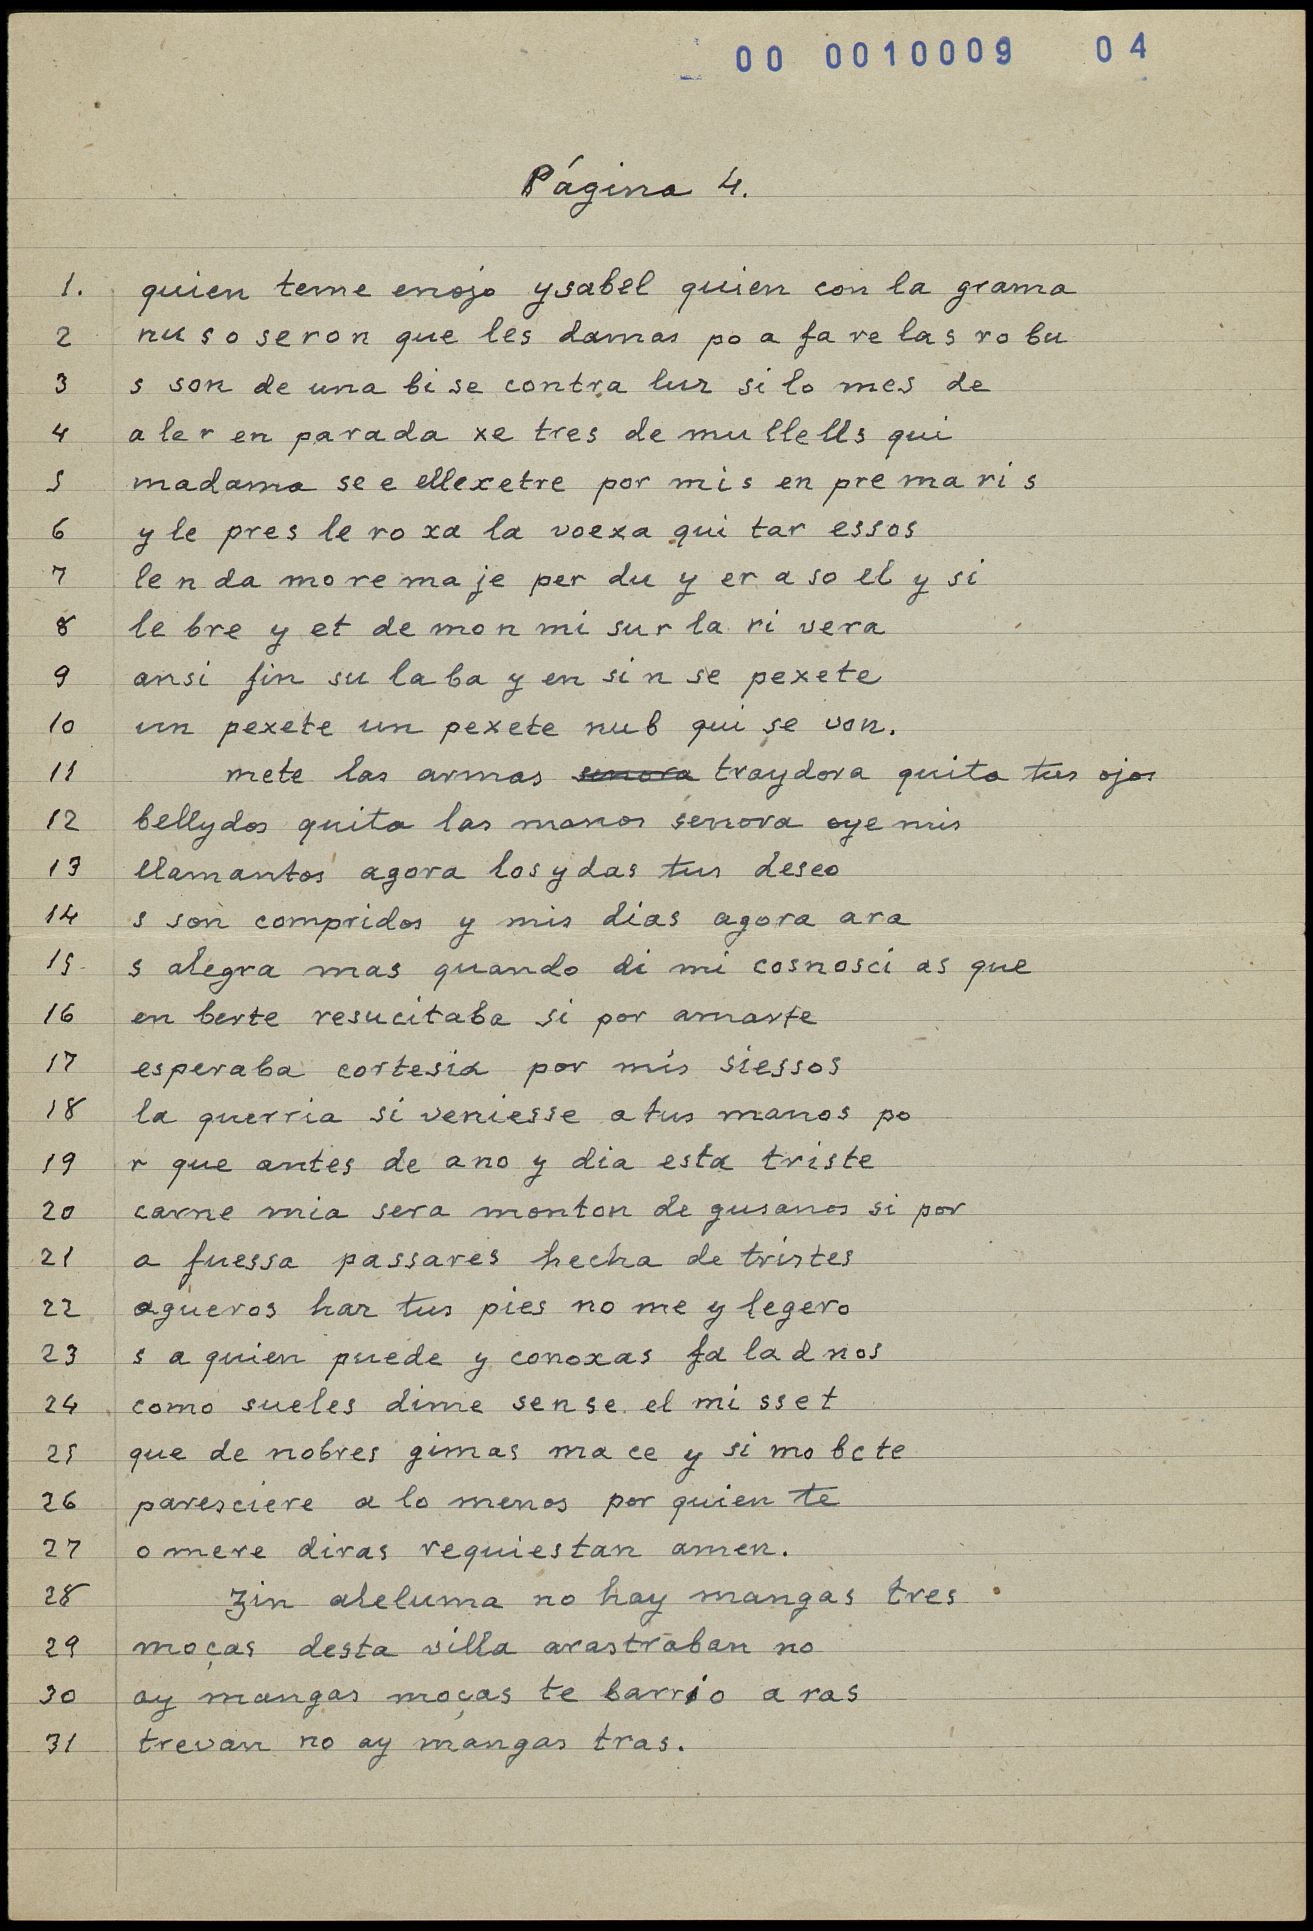 00 0010009 04
Página 4.
1. quien teme enojo ysabel quien con la grama
2 nu s o se ron que les damas po a fa re las ro bu
3 s son de una bi se contra luz si lo mes de
4 a le r en parada xe tres de mu llells qui
5 madama se e ellexetre por mis en pre ma ri s
6 y le pres le ro xa la voexa qui tar essos
7 le n da mo re ma je per du y er a so el y si
8 le bre y et de mon mi sur la ri vera
9 ansi fin su la ba y en si n se pexete
10 un pexete un pexete nub qui se von.
11 mete las armas senora traydora quita tus ojos
12 bellydos quita las manos senora oye mis
13 llamantos agora los ydas tus deseo
14 s son compridos y mis dias agora ara
15 s alegra mas quando di mi cosnosci as que
16 en berte resucitaba si por amarte
17 esperaba cortesia por mis siessos
18 la querria si veniesse a tus manos po
19 r que antes de ano y dia esta triste
20 carne mia sera monton de gusanos si por
21 a fuessa passares hecha de tristes
22 agueros haz tus pies no me y legero
23 s a quien puede y conoxas fa lad nos
24 como sueles dime sense el mi sset
25 que de nobres gimas ma ce y si mo bcte
26 paresciere a lo menos por quien te
27 o mere diras requiestan amen.
28 Zin aleluma no hay mangas tres
29 moças desta villa arastraban no
30 ay mangas moças te barrio a ras
31 trevan no ay mangas tras.